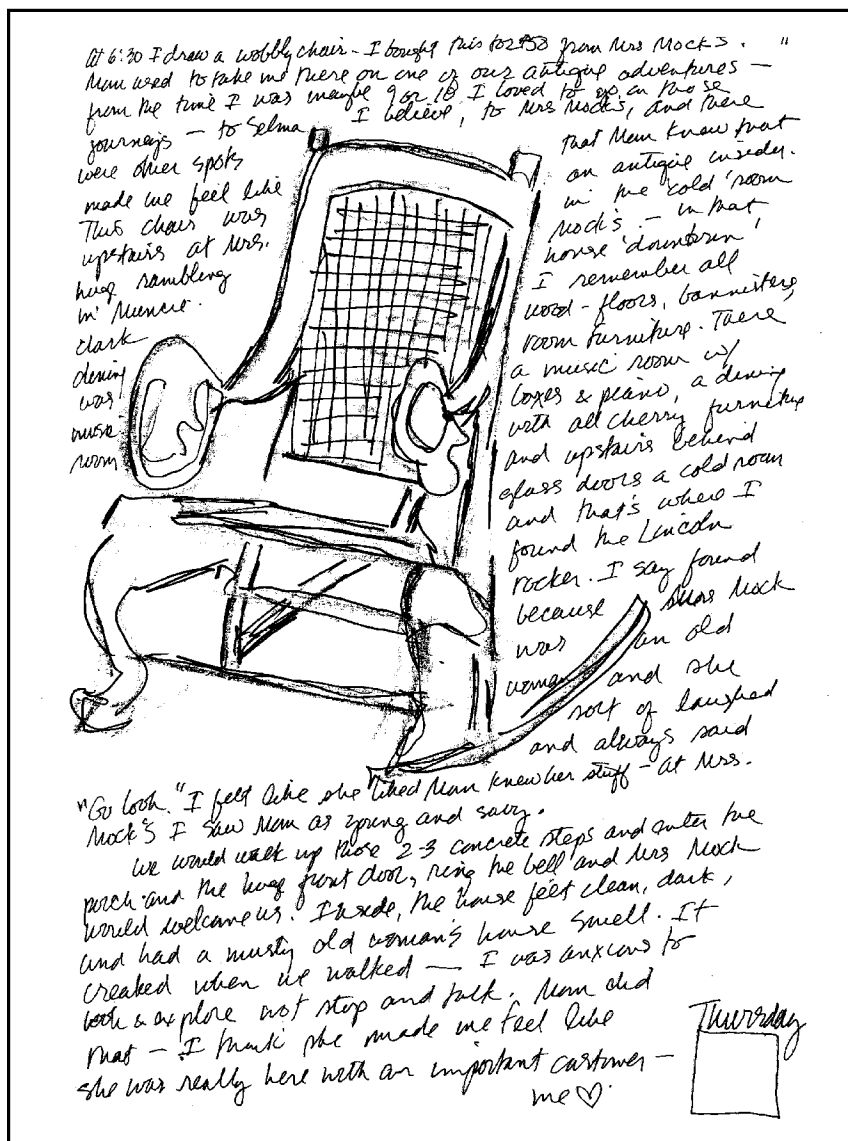 At 6:30 I draw a wobbly chair - I bought this for $50 from Mrs Mock's. "
Mom used to take me there on one of our antique adventures —
from the time I was maybe 9 or 10 I loved to go on those
journeys — to Selma I believe, to Mrs Mock's, and there
were other spots that Mom knew that
made me feel like an antique insider.
This chair was in the 'cold' room
upstairs at Mrs. Mock's. — in that
huge rambling house 'downtown'
in Muncie. I remember all
dark wood - floors, bannisters,
dining room furniture. There
was a music room w/
music boxes & piano, a dining
room with all cherry furniture
and upstairs behind
glass doors a cold room
and that's where I
found the Lincoln
rocker. I say found
because Mrs Mock
was an old
woman and she
sort of laughed
and always said
"Go look." I felt like she liked Mom knew her stuff - at Mrs.
Mock's I saw Mom as young and savy.
We would walk up those 2-3 concrete steps and enter the
porch and the huge front door, ring the bell and Mrs Mock
would welcome us. Inside, the house felt clean, dark,
and had a musty old woman's house smell. It
creaked when we walked — I was anxious to
look & explore not stop and talk. Mom did
that — I think she made me feel like
she was really here with an important customer —
me ♡.
Thursday